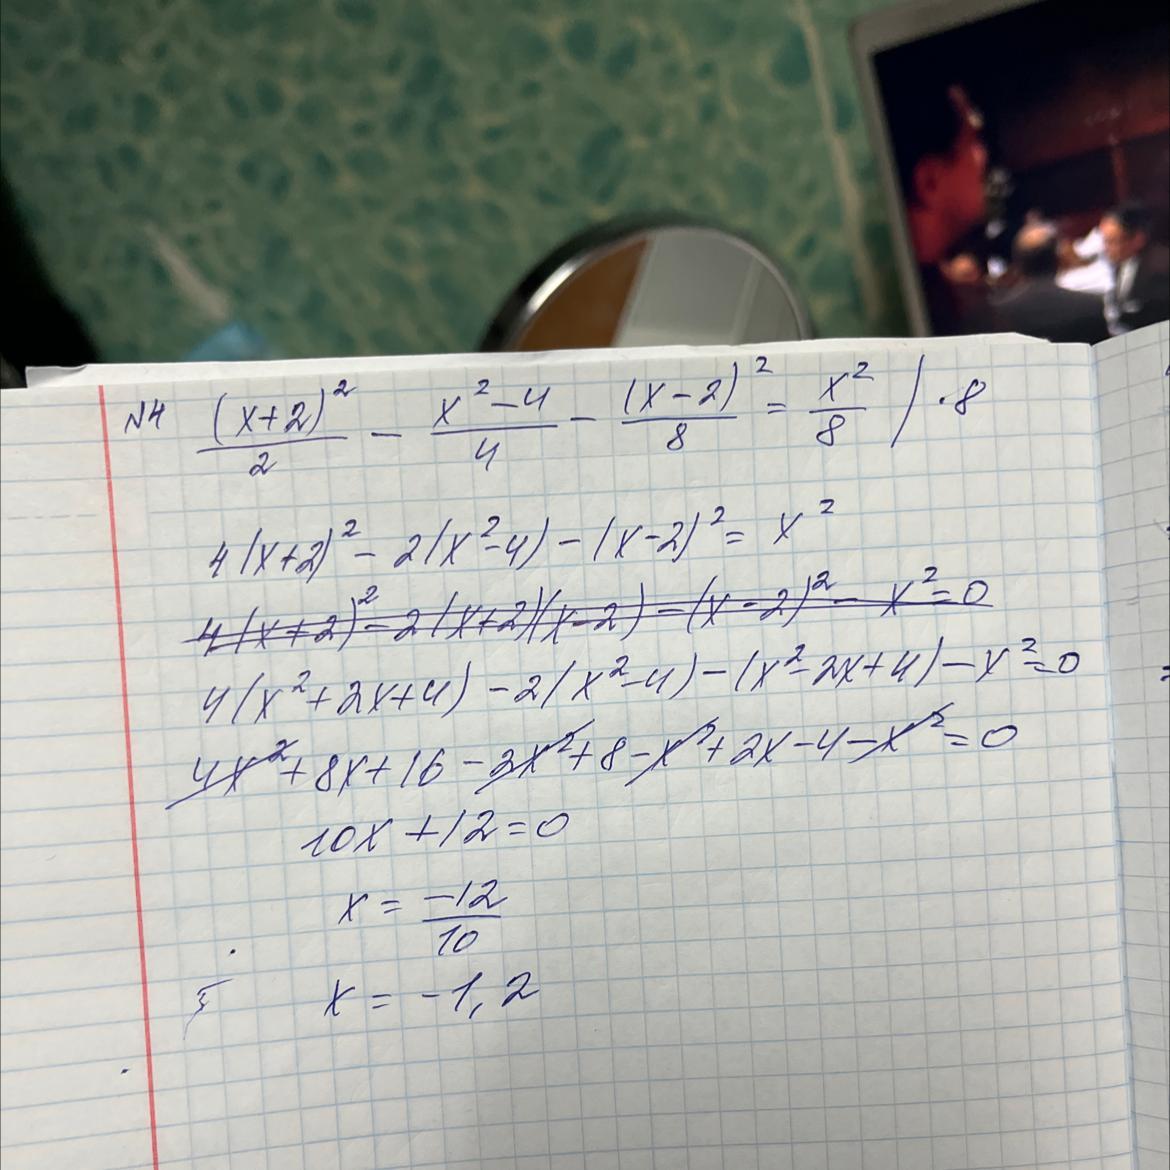 N4 (x+2)²/2 - x²-4/4 - (x-2)²/8 = x²/8 / ·8
4(x+2)² - 2(x²-4) - (x-2)² = x²
4(x+2)² - 2(x+2)(x-2) - (x-2)² - x² = 0
4(x²+2x+4) - 2(x²-4) - (x²-2x+4) - x² = 0
4x² + 8x + 16 - 2x² + 8 - x² + 2x - 4 - x² = 0
10x + 12 = 0
x = -12/10
x = -1,2